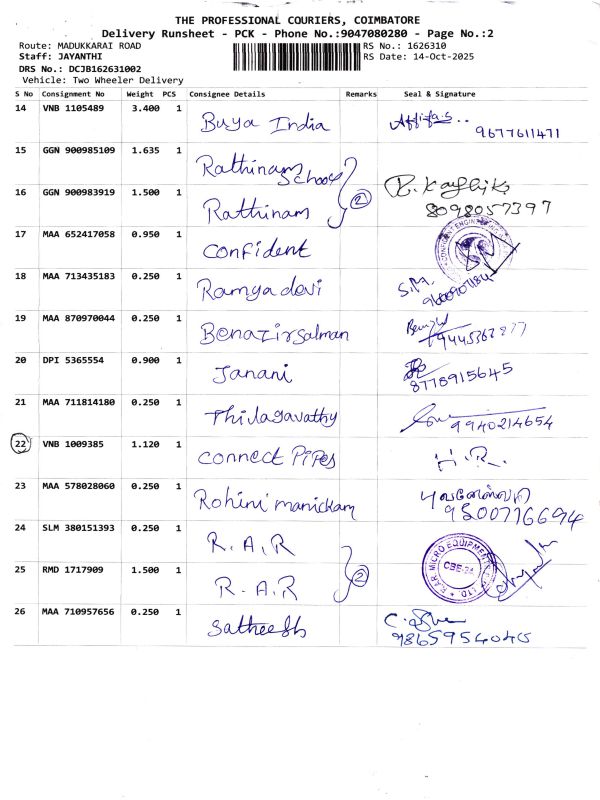 THE PROFESSIONAL COURIERS, COIMBATORE
Delivery Runsheet - PCK - Phone No.:9047080280 - Page No.:2
Route: MADUKKARAI ROAD
RS No.: 1626310
Staff: JAYANTHI
RS Date: 14-Oct-2025
DRS No.: DCJB162631002
Vehicle: Two Wheeler Delivery
S No Consignment No Weight PCS Consignee Details Remarks Seal & Signature
14 VNB 1105489 3.400 1 Buya India
9677611471
15 GGN 900985109 1.635 1 Rathinam School
16 GGN 900983919 1.500 1 Rathinam 2 R. Karthik
8098057397
17 MAA 652417058 0.950 1 Confident
18 MAA 713435183 0.250 1 Ramya devi
19 MAA 870970044 0.250 1 Benazirsalman
20 DPI 5365554 0.900 1 Janani
8778915645
21 MAA 711814180 0.250 1 Thilagavathy
9940214654
22 VNB 1009385 1.120 1 Connect Pipes H.R.
23 MAA 578028060 0.250 1 Rohini manickam புவனேஸ்வரி
9500776694
24 SLM 380151393 0.250 1 R.A.R
25 RMD 1717909 1.500 1 R.A.R 2 R.A.R MICRO EQUIPMENTS LTD. CBE-24
26 MAA 710957656 0.250 1 Satheesh
9865954045